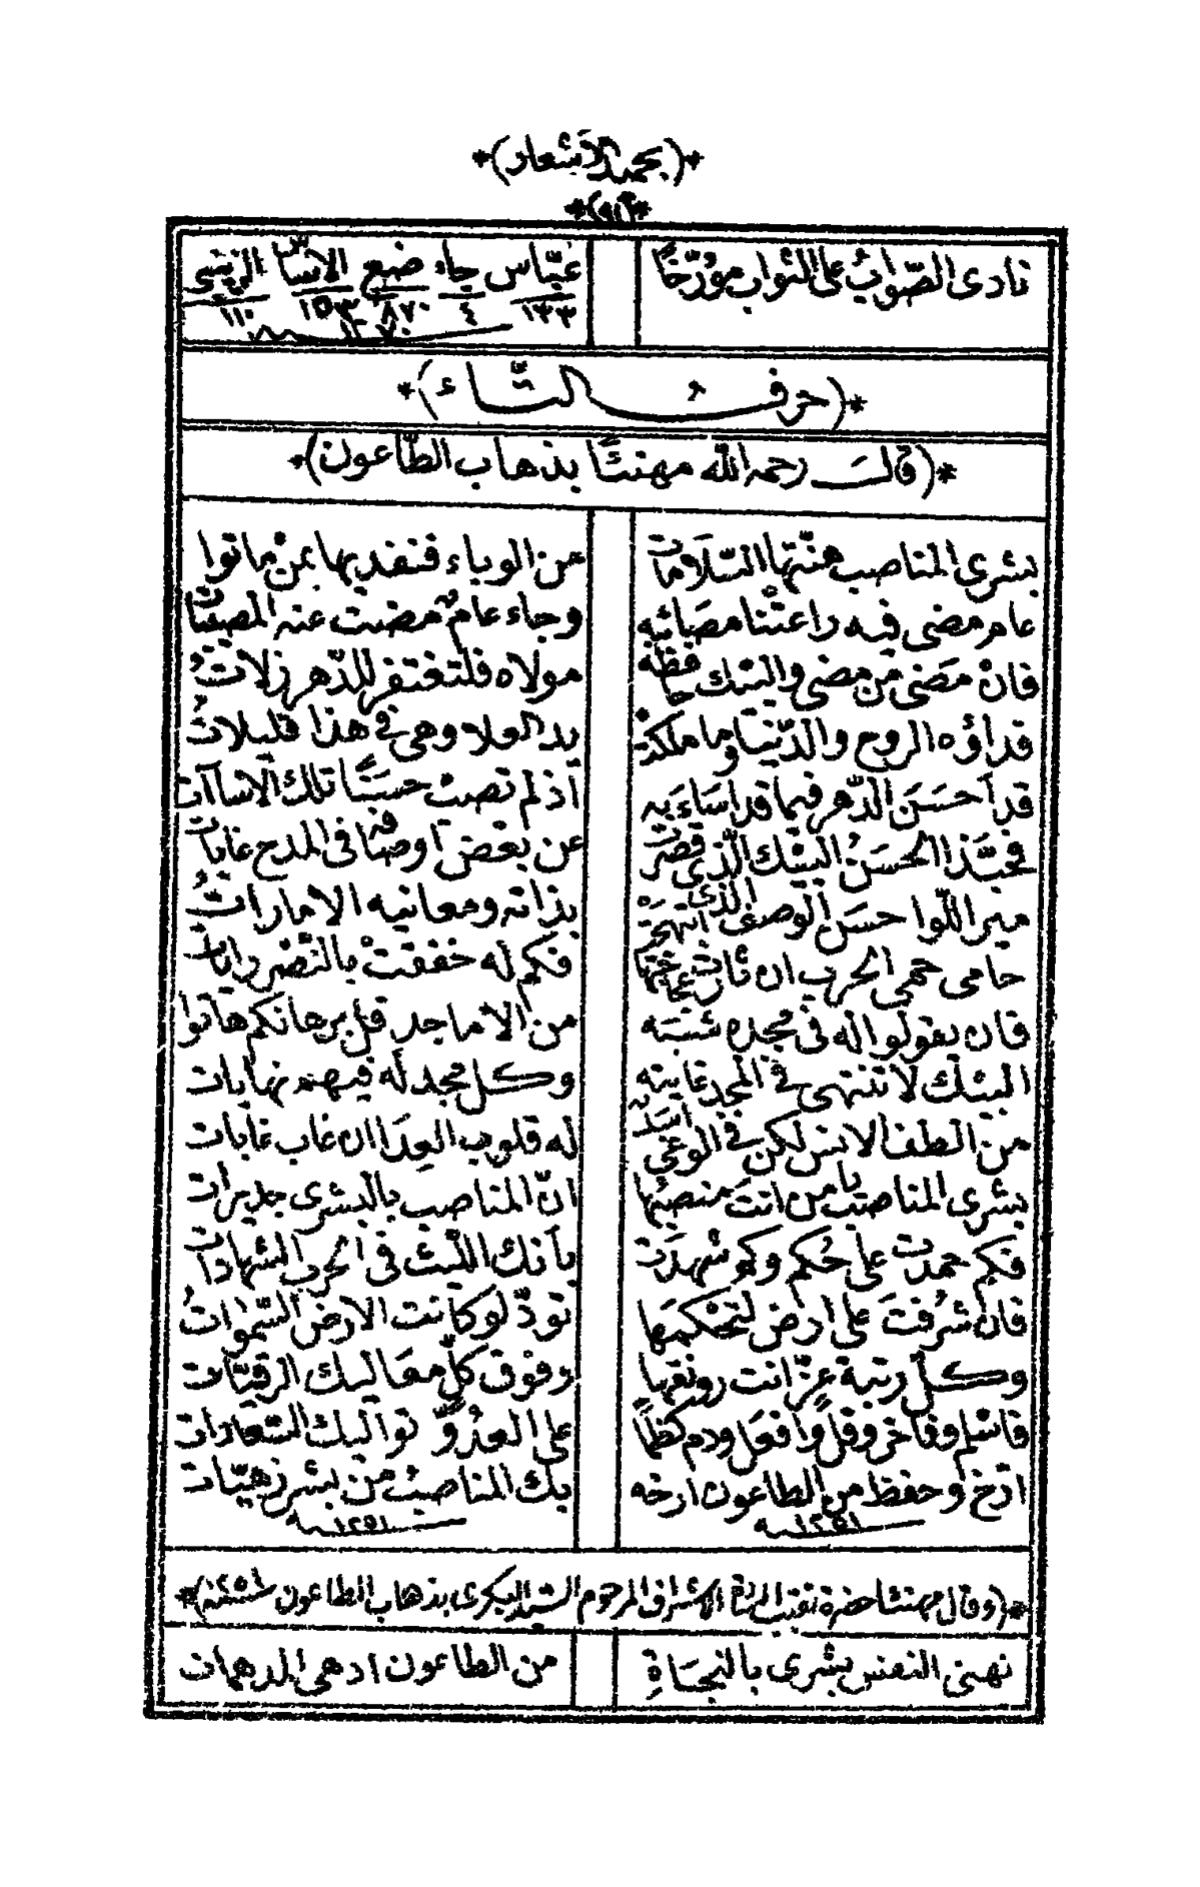 *(بحميد الأشعار)*
*(٩٢)*
نادى الصّواب على الثواب مؤرّخًا عبّاس جاء ضيع الاساس الزينبى
١٣٣ ٤ ٨٧٠ ١٥٣ ١١٠
١٢٧٠
*(حرف التّاء)*
*(قال رحمه الله مهنئًا بذهاب الطّاعون)*
بشرى المناصب هنّتها السّلامات من الوباء فنفديها بمنْ ماتوا
عام مضى فيه راعتْنا مصَائبه وجاء عام مضت عنه المصيبات
فانْ مَضى مَن مضى والبيْك حافظه مولاه فلتغتفر للدّهر زلّاتُ
قداؤه الروح والدّنيا وما ملكتْ يد العلا وهى فى هذا قليلات
قد أحسَنَ الدّهر فيما قد اسَاءَ به أذ لم تصبْ حسَنًا تلك الاساآت
فحبّذا الحسَنُ البيْك الّذى قصرت عن بعْض اوصافه فى المدح غايات
مير اللّوا حسَن الوصف الذى بذاته ومعانيه الامارات
حامى حمى الحرب ان ثارت فكم له خفقتْ بالنّصْر رايات
فان يقولوا له فى مجده شبَه من الاماجد قل برهانكم هاتوا
البيْك لا تنتهى فى المجد غايته وكل مجد له فيهم نهايات
من الطف الانس لكن فى الوغى اسَد له قلوب العِدَا ان غاب غابات
بشرى المناصب يا من انتَ منصبها انّ المناصب بالبشرى جديرات
فكم حمدت على حُكم وكم شهدَت بأنك اللّيث فى الحرب الشهادات
فان شرُفتَ على ارض لتحْكمهَا تودّ لو كانت الارض السّمواتُ
وكل رتبة عِزّ انت رونقها وفوق كلّ معَاليك الرقيّات
فاسْلم وفاخر وقل وافعَل ودم كظًا على العدُوّ توَاليك السّعَادات
ارّخ وحفظ من الطاعون ارخه بك المناصبُ من بشر زهيّات
١٢٥١ ١٢٥١
*(وقال مهنئا حضرة نقيب السادة الاشراف المرحوم السّيد البكرى بذهاب الطاعون سنة ١٢٥١)*
نهنى النفس بشرى بالنجَاةِ من الطاعون ادهى المدهمات